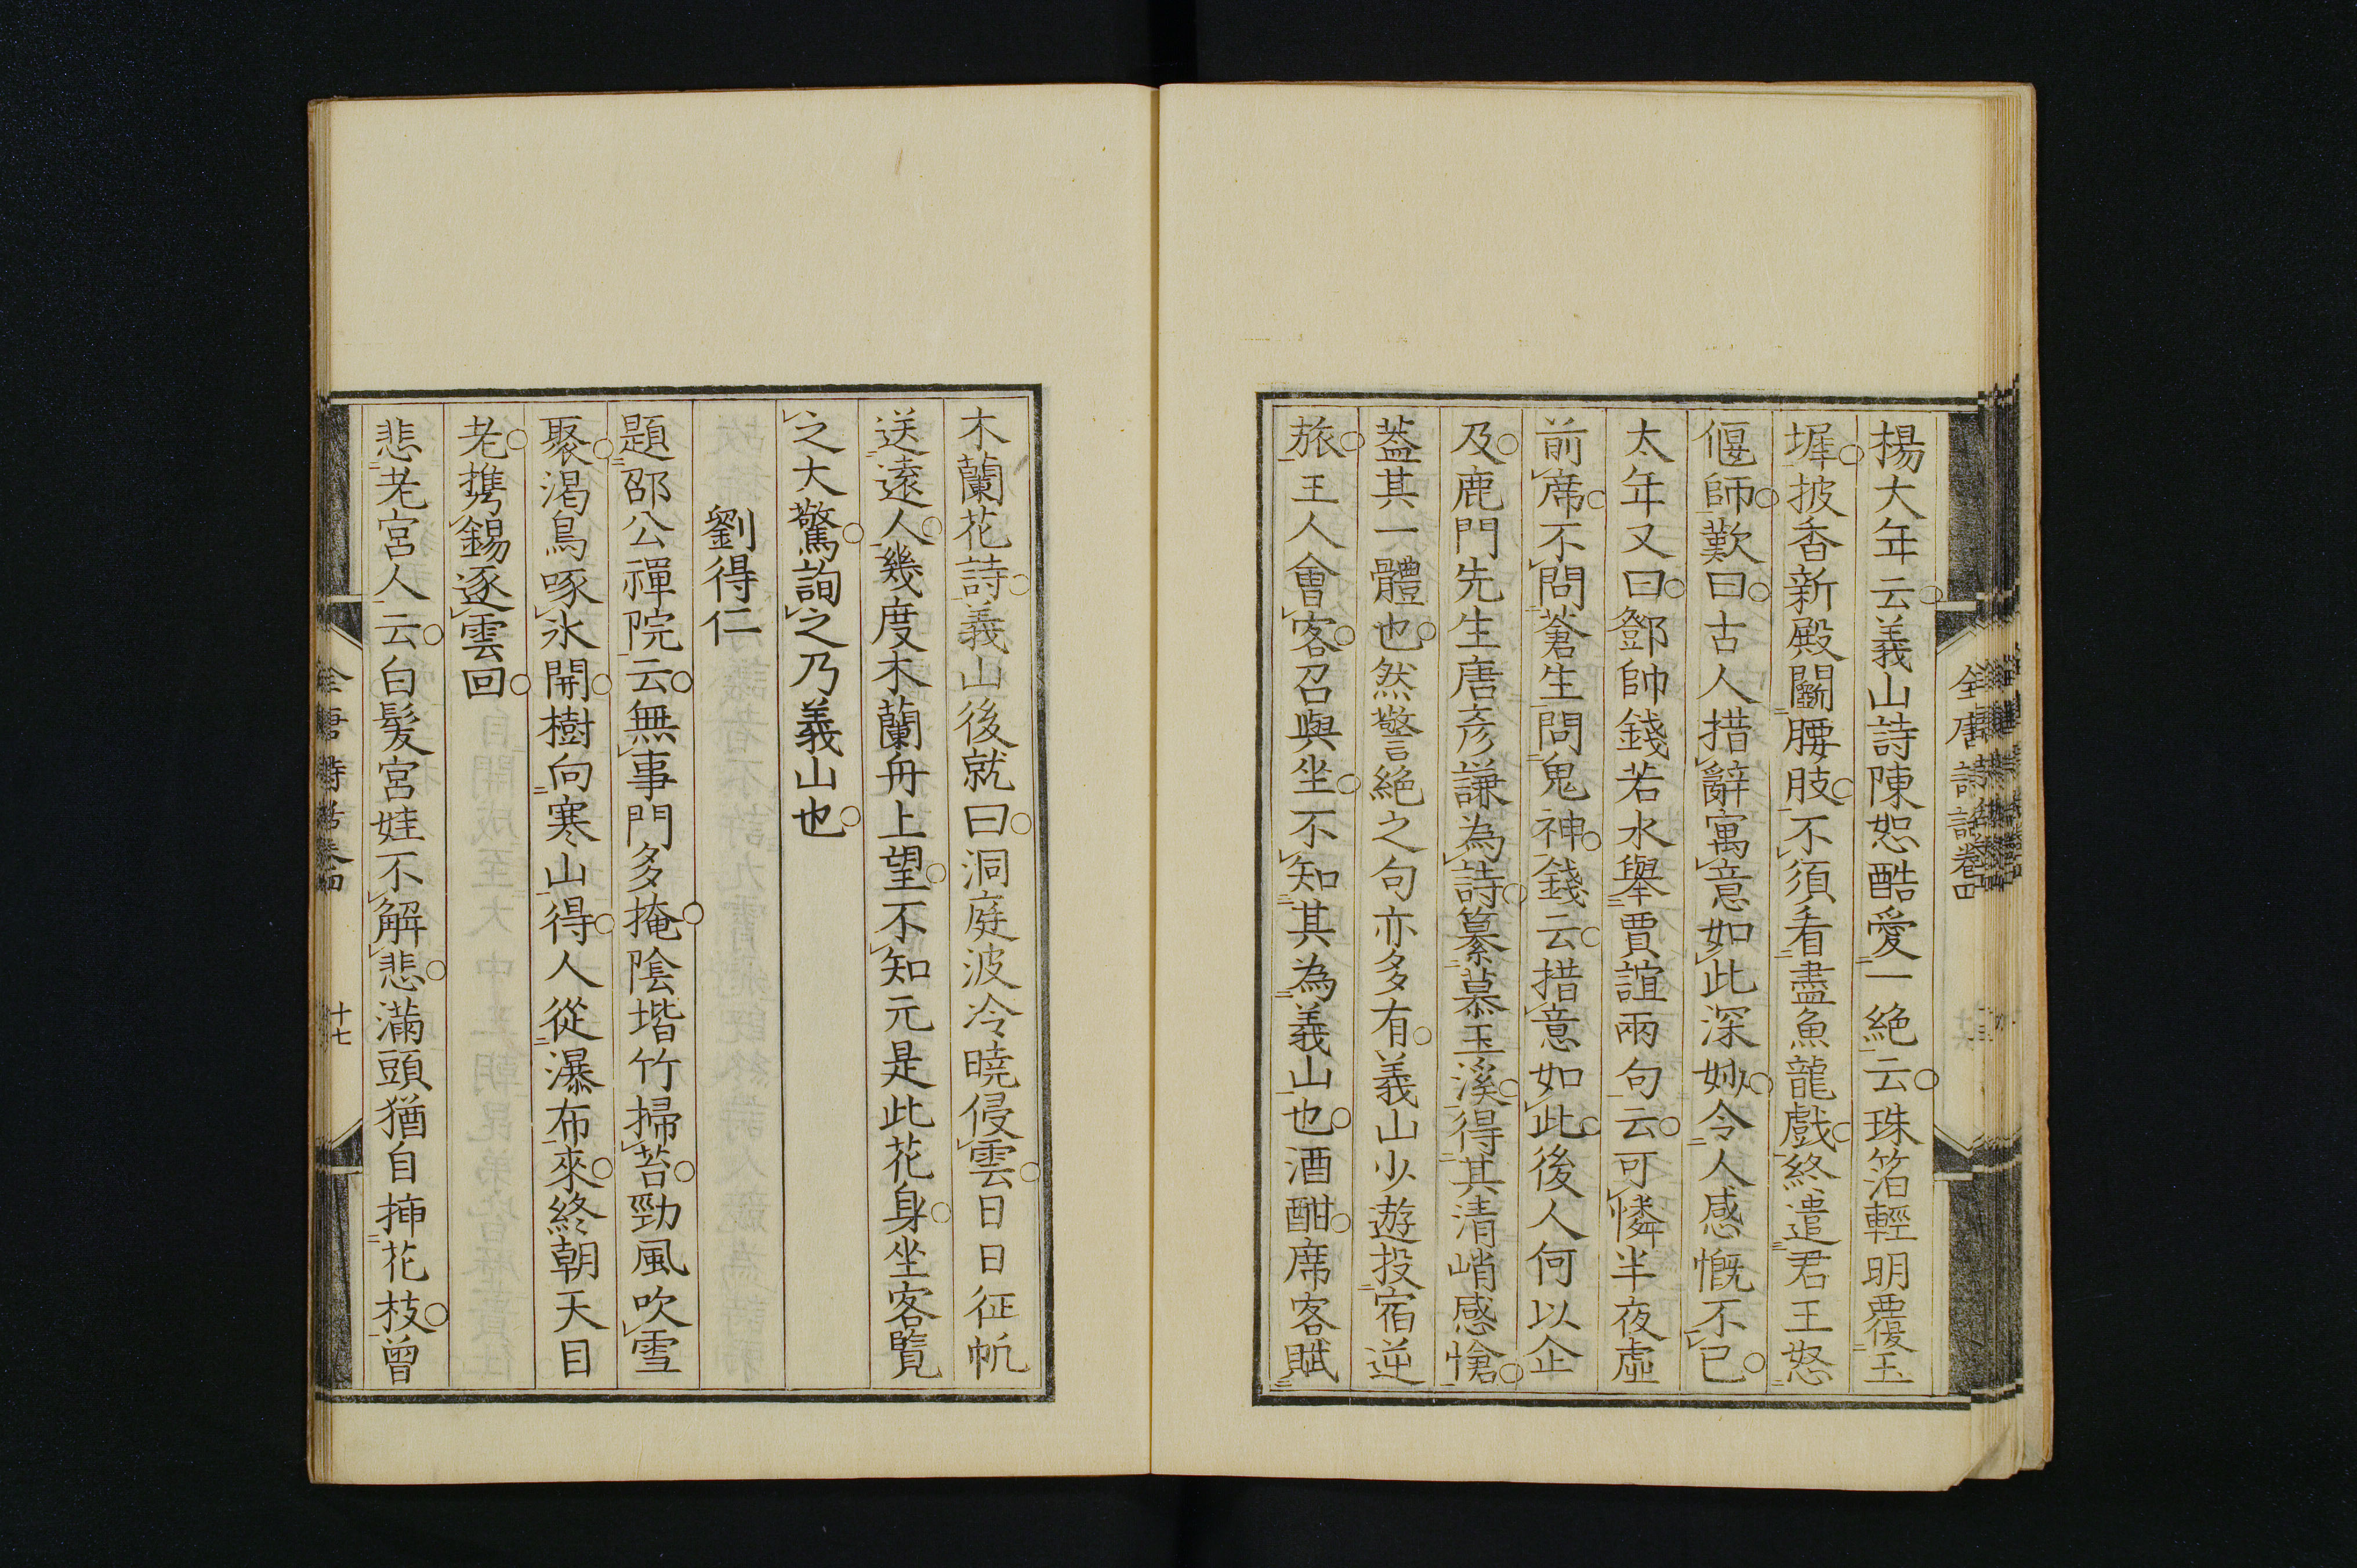 全唐詩話卷四
楊大年云義山詩陳恕酷愛一絶云珠箔輕明覆玉
墀披香新殿鬭腰肢不須看盡魚龍戲終遣君王怒
偃師歎曰古人措辭寓意如此深妙令人感慨不已
大年又曰鄧帥錢若水舉賈誼兩句云可憐半夜虛
前席不問蒼生問鬼神錢云措意如此後人何以企
及鹿門先生唐彦謙為詩纂慕玉溪得其清峭感愴
葢其一體也然警絶之句亦多有義山少遊投宿逆
旅王人會客召與坐不知其為義山也酒酣席客賦
木蘭花詩義山後就曰洞庭波冷曉侵雲日日征帆
送遠人幾度木蘭舟上望不知元是此花身坐客覽
之大驚詢之乃義山也
劉得仁
題邵公禪院云無事門多掩陰堦竹掃苔勁風吹雪
聚渴鳥啄氷開樹向寒山得人從瀑布來終朝天目
老携錫逐雲回
悲老宮人云白髮宮娃不解悲滿頭猶自挿花枝曾
全唐詩話卷四
十七